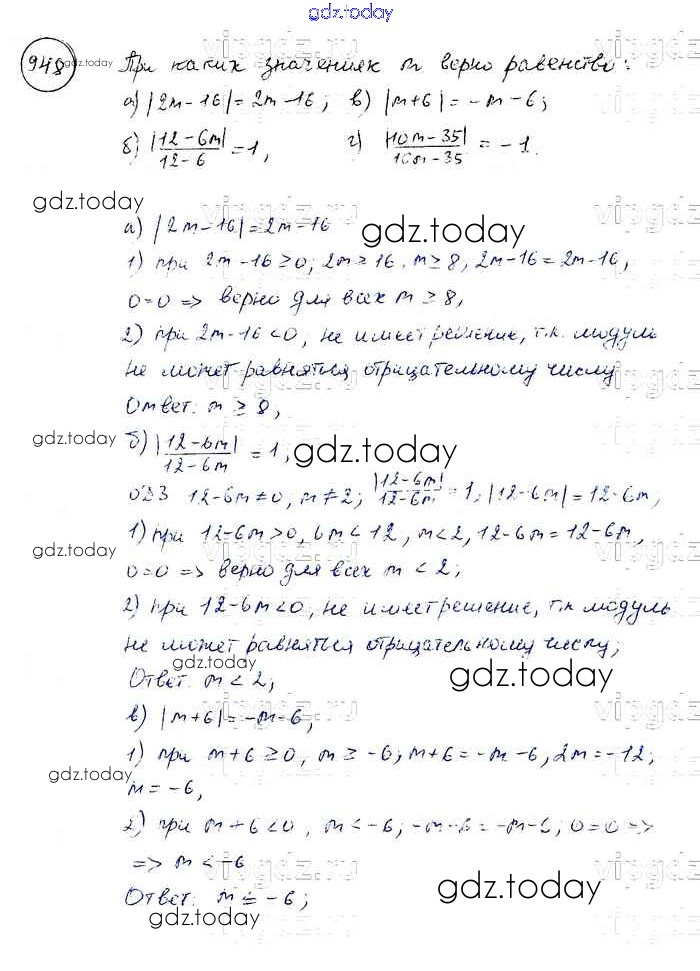 gdz.today
948 gdz.today При каких значениях m верно равенство:
а) |2m-16| = 2m-16; в) |m+6| = -m-6;
б) |12-6m|/12-6 = 1, г) |10m-35|/10m-35 = -1.
gdz.today
gdz.today
а) |2m-16| = 2m-16
1) при 2m-16 ≥ 0; 2m ≥ 16. m ≥ 8, 2m-16 = 2m-16,
0=0 => верно для всех m ≥ 8,
2) при 2m-16 < 0, не имеет решение, т.к. модуль
не может равняться отрицательному числу
Ответ: m ≥ 8,
gdz.today
gdz.today
б) |12-6m|/12-6m = 1,
ОДЗ 12-6m ≠ 0, m ≠ 2; |12-6m|/12-6m = 1, |12-6m| = 12-6m,
1) при 12-6m > 0, 6m < 12, m < 2, 12-6m = 12-6m,
gdz.today
0=0 => верно для всех m < 2;
2) при 12-6m < 0, не имеет решение, т.к модуль
не может равняться отрицательному числу;
gdz.today
Ответ. m < 2,
gdz.today
в) |m+6| = -m-6,
1) при m+6 ≥ 0, m ≥ -6; m+6 = -m-6, 2m = -12;
gdz.today
m = -6,
2) при m+6 < 0, m < -6; -m-6 = -m-6; 0=0 =>
=> m < -6
Ответ: m ≤ -6;
gdz.today
gdz.today